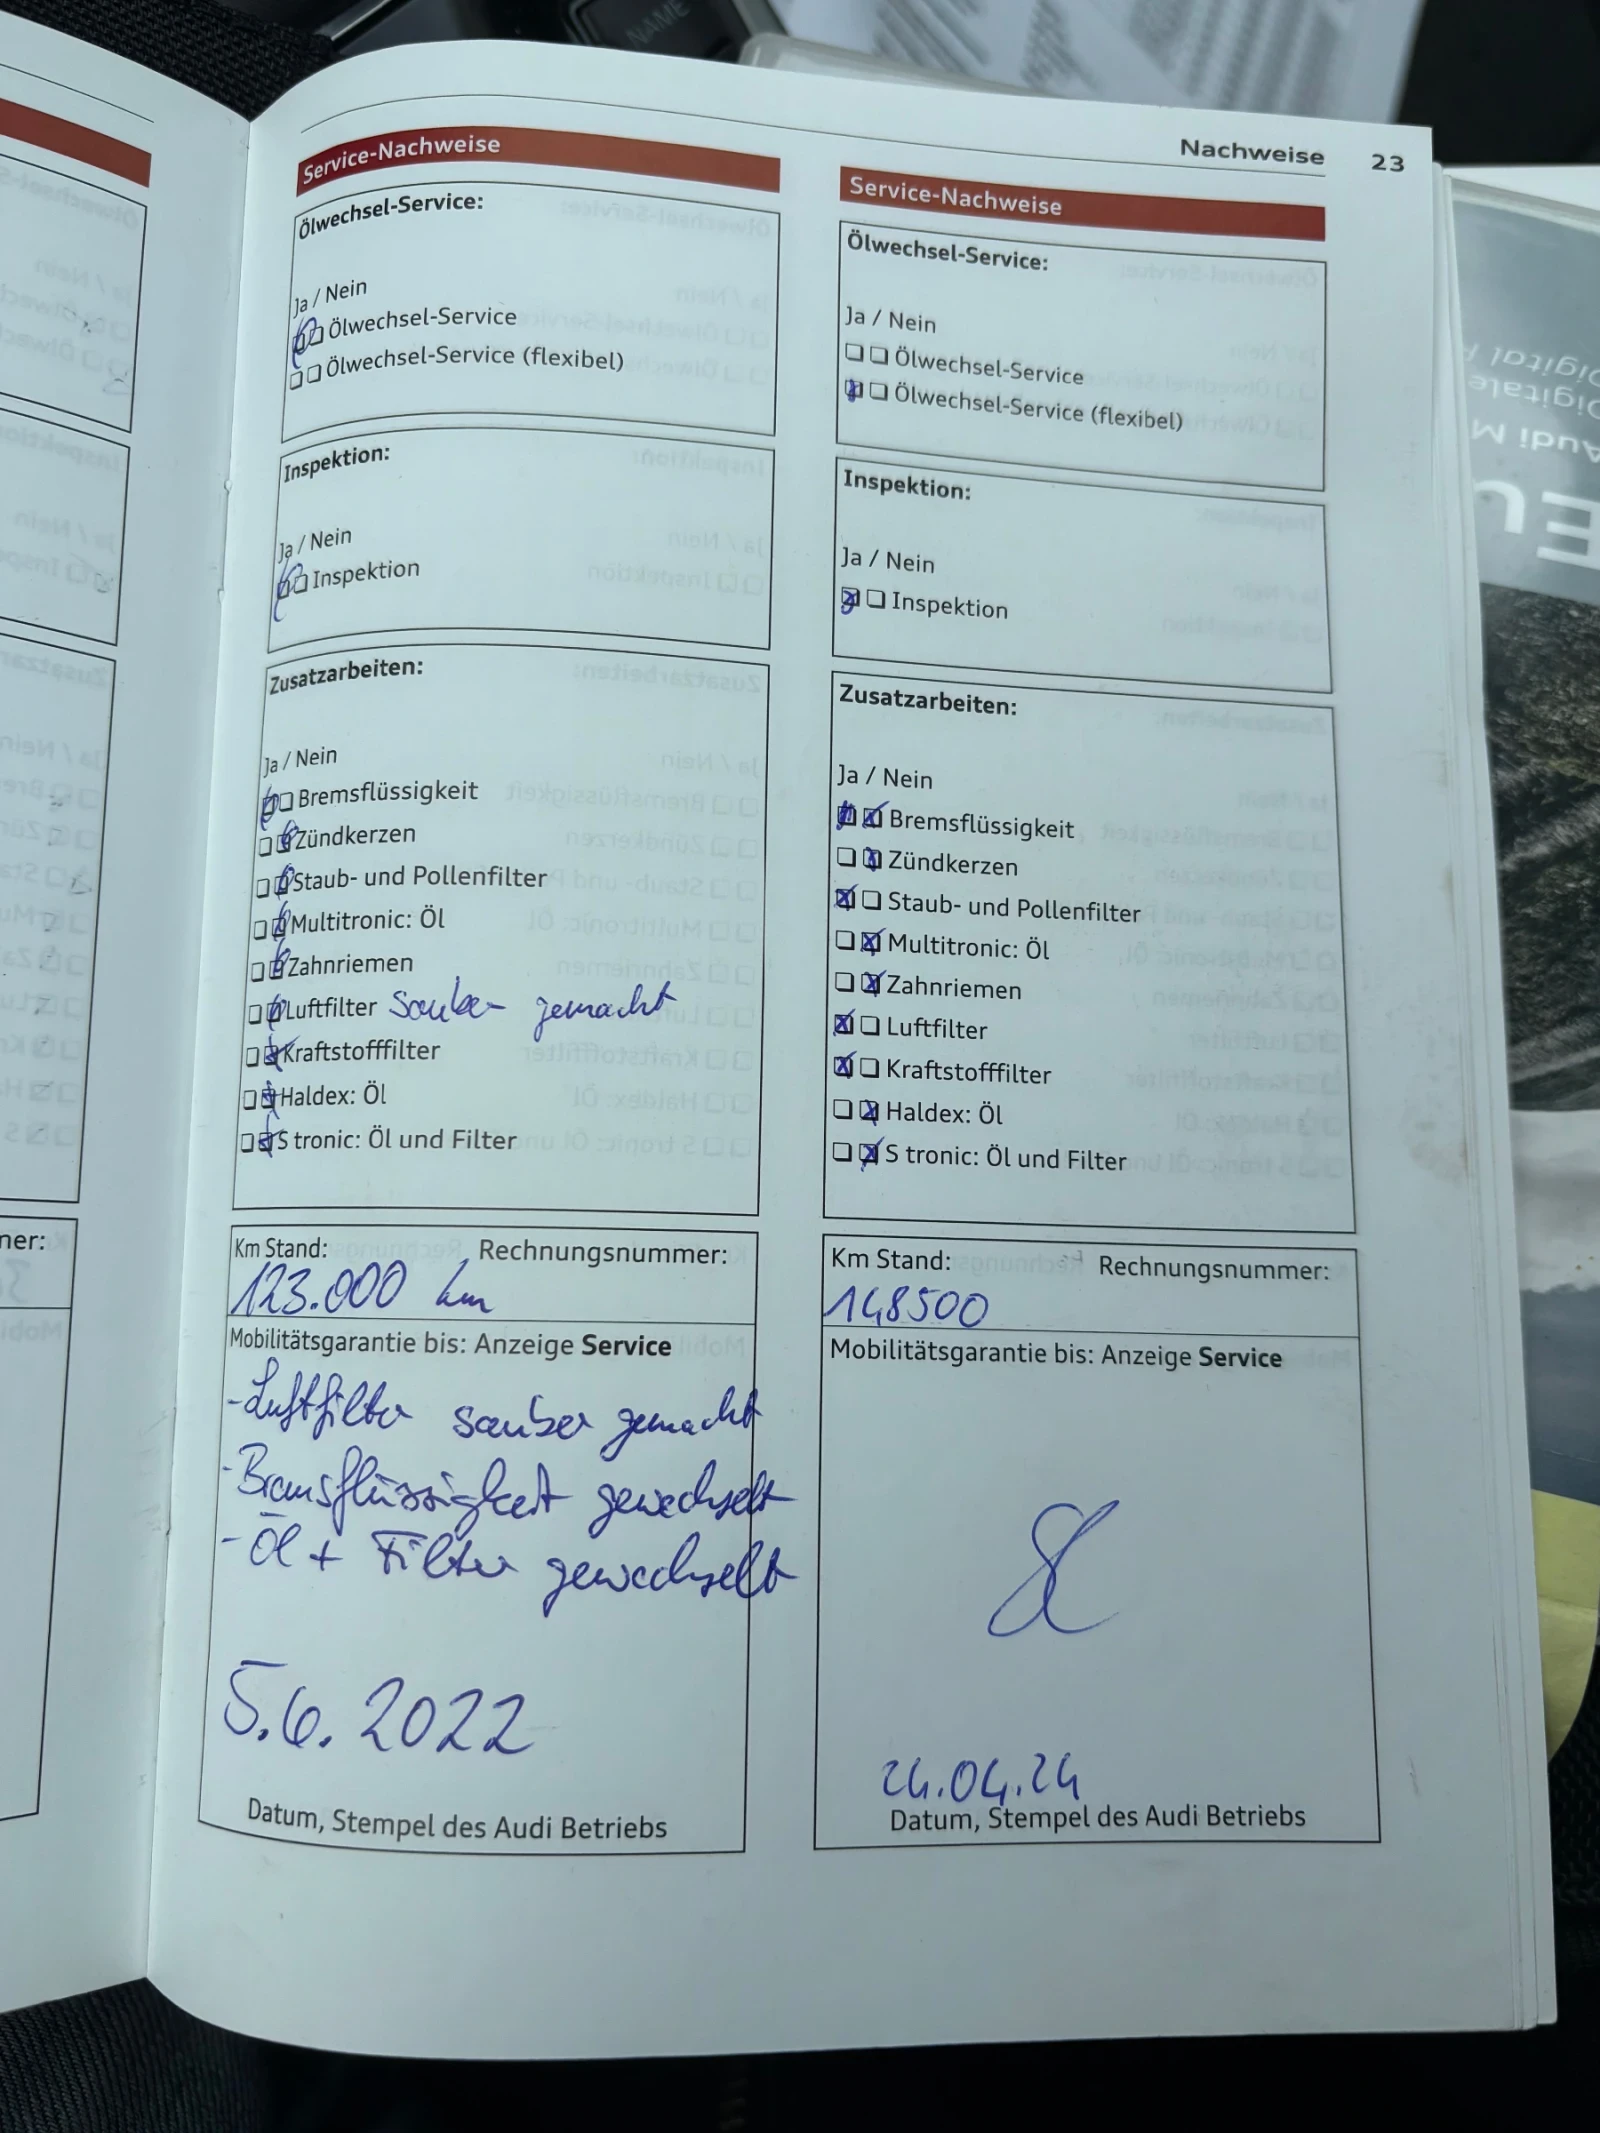 NAME
Nachweise 23
Service-Nachweise
Ölwechsel-Service:
Ja / Nein
Ölwechsel-Service
Ölwechsel-Service (flexibel)
Inspektion:
Ja / Nein
Inspektion
Zusatzarbeiten:
Ja / Nein
Bremsflüssigkeit
Zündkerzen
Staub- und Pollenfilter
Multitronic: Öl
Zahnriemen
Luftfilter sauber gemacht
Kraftstofffilter
Haldex: Öl
S tronic: Öl und Filter
Km Stand: Rechnungsnummer:
123.000 km
Mobilitätsgarantie bis: Anzeige Service
- Luftfilter sauber gemacht
- Bremsflüssigkeit gewechselt
- Öl + Filter gewechselt
5.6.2022
Datum, Stempel des Audi Betriebs
Service-Nachweise
Ölwechsel-Service:
Ja / Nein
Ölwechsel-Service
Ölwechsel-Service (flexibel)
Inspektion:
Ja / Nein
Inspektion
Zusatzarbeiten:
Ja / Nein
Bremsflüssigkeit
Zündkerzen
Staub- und Pollenfilter
Multitronic: Öl
Zahnriemen
Luftfilter
Kraftstofffilter
Haldex: Öl
S tronic: Öl und Filter
Km Stand: Rechnungsnummer:
148500
Mobilitätsgarantie bis: Anzeige Service
24.04.24
Datum, Stempel des Audi Betriebs